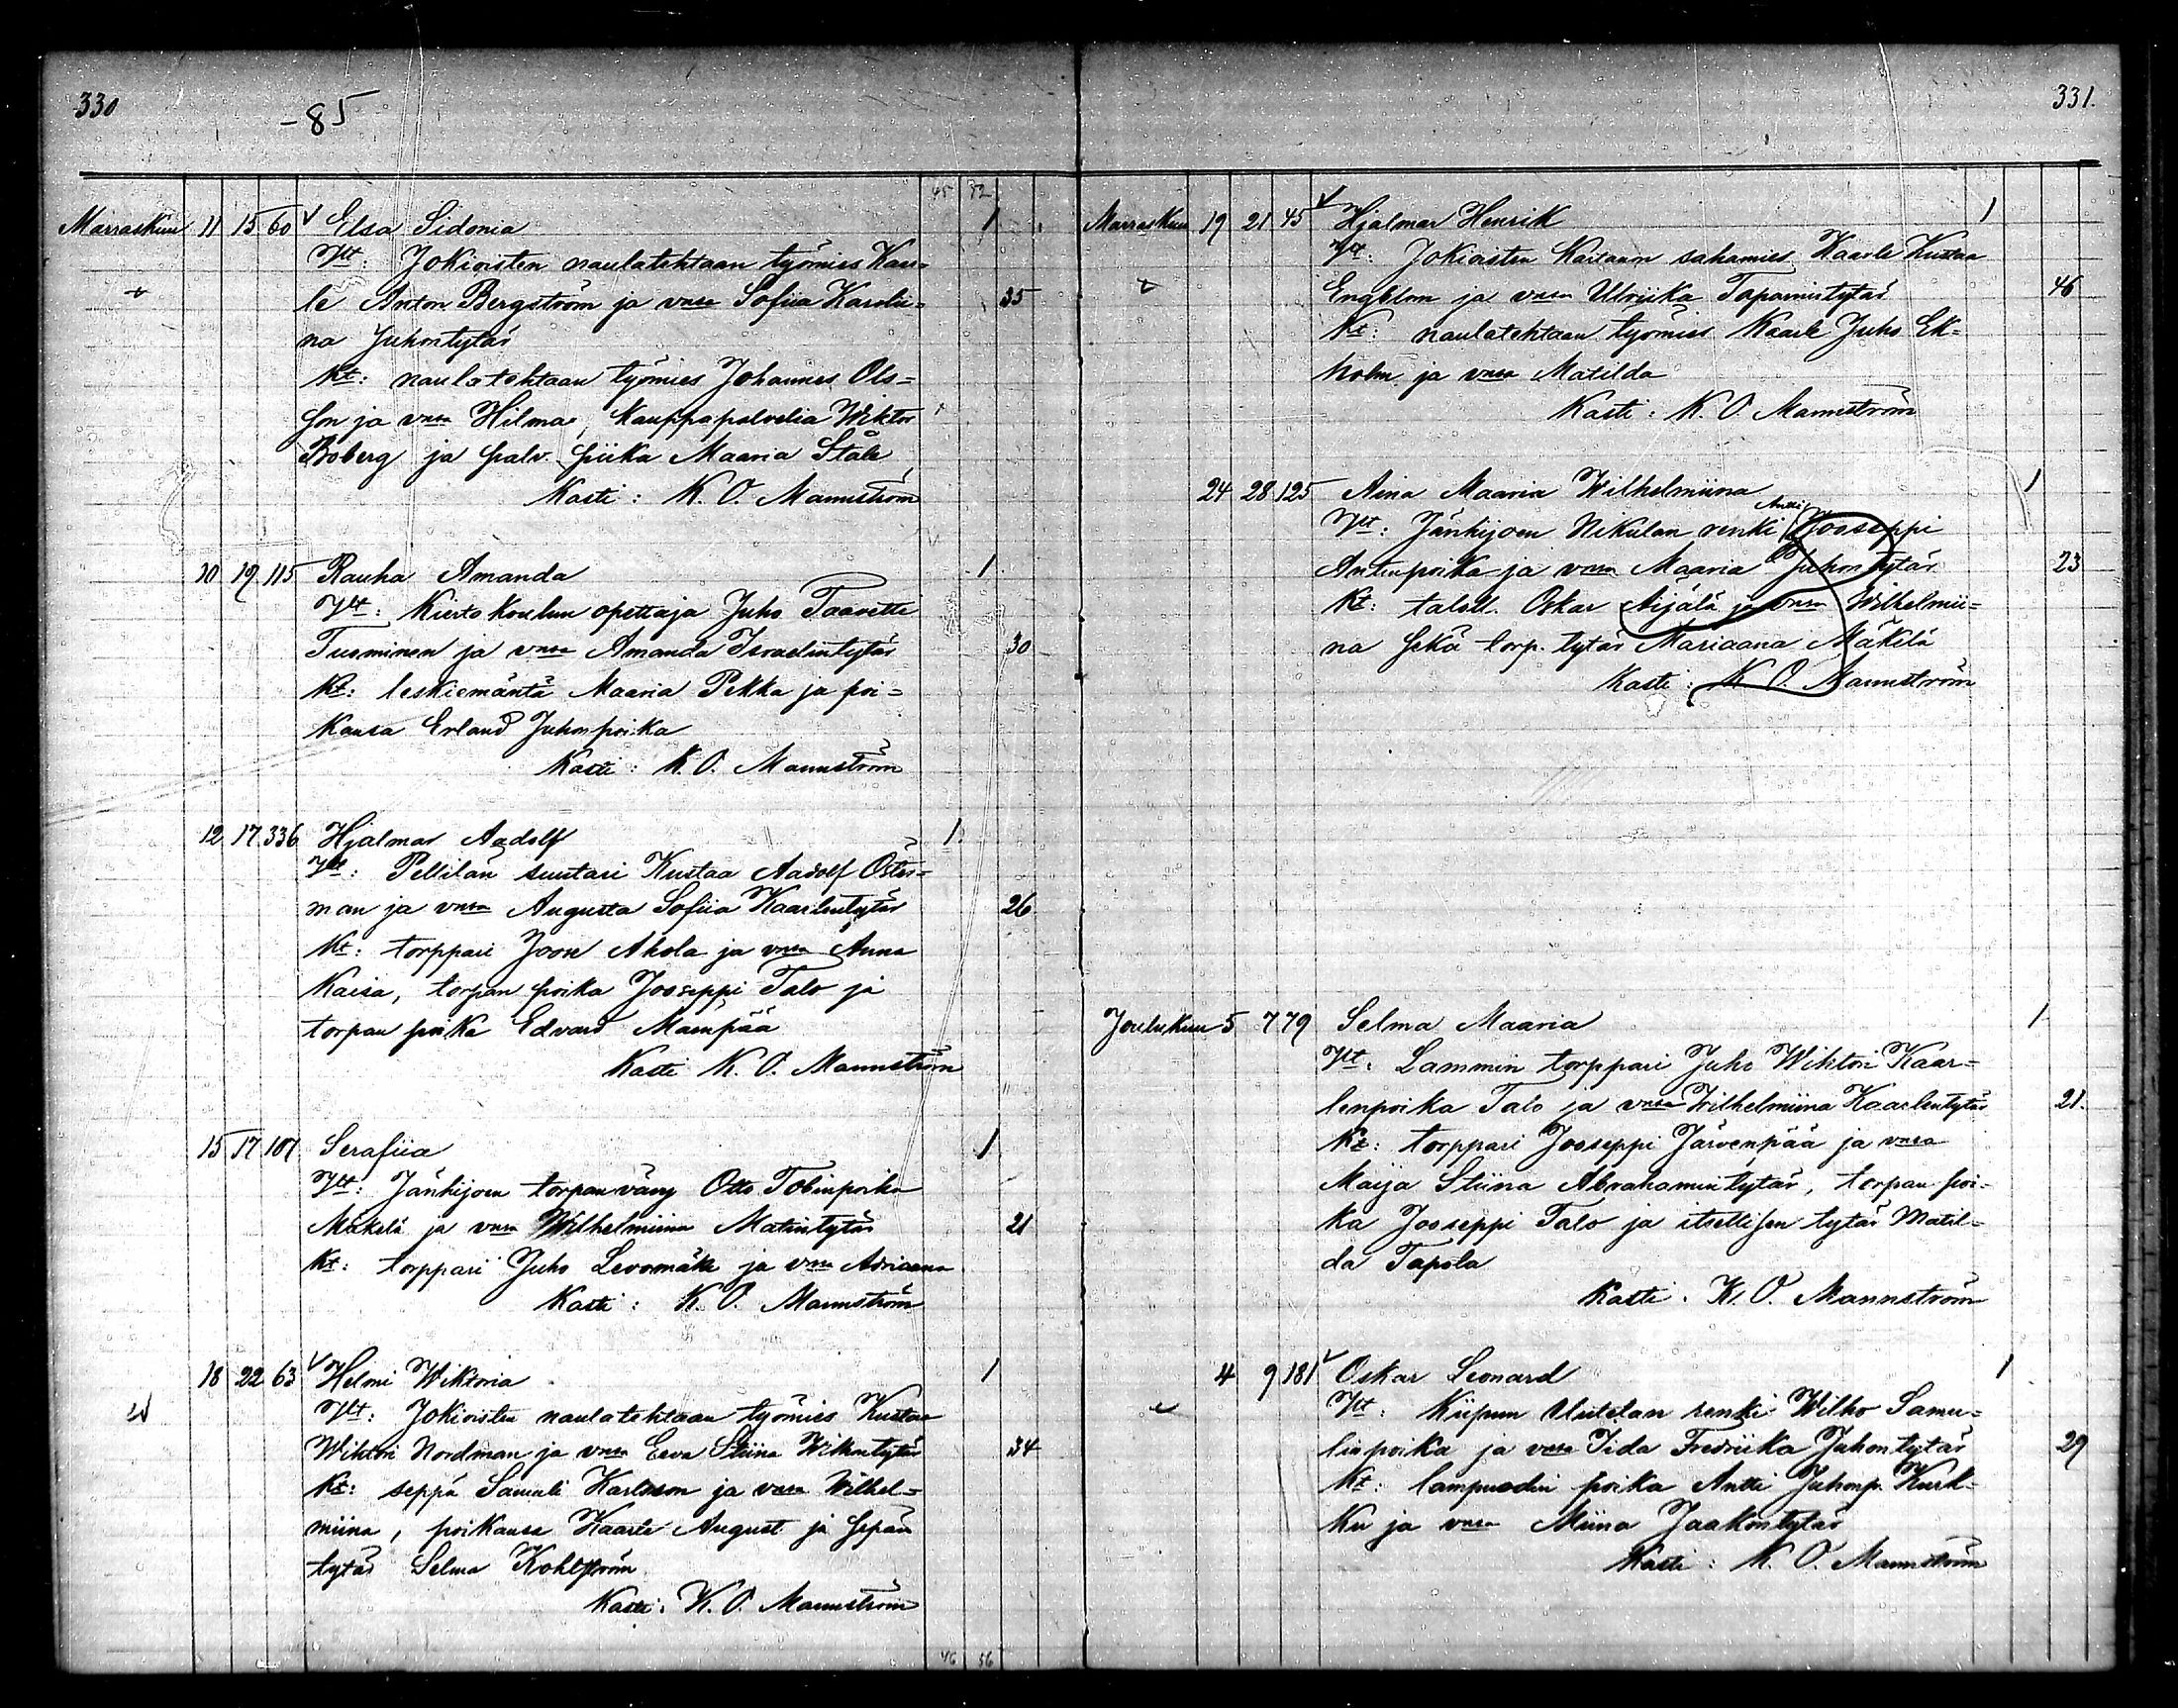 330
-85
45 32
Marraskuu 11 15 60 Elsa Sidonia 1
Vt: Jokioisten naulatehtaan työmies Kaar-
le Anton Bergström ja vmsa Sofiia Karolii- 35
na Juhontytär
Kt: naulatehtaan työmies Johannes Ols-
son ja vmsa Hilma, kauppapalvelia Wiktor
Boberg ja palv. piika Maaria Ståle
Kasti: K. O. Mannström
10 19 115 Rauha Amanda 1
Vt: Kiertokoulun opettaja Juho Taavetti
Tuominen ja vmsa Amanda Israelintytär 30
Kt: leskiemäntä Maaria Pekka ja poi-
kansa Erland Juhonpoika
Kasti: K. O. Mannström
12 17 336 Hjalmar Aadolf 1
Vt: Pellilän suutari Kustaa Aadolf Öster-
man ja vmsa Augusta Sofiia Kaarlentytär 26
Kt: torppari Joose Ahola ja vmsa Anna
Kaisa, torpan poika Jooseppi Talo ja
torpan poika Edvard Mäenpää
Kasti K. O. Mannström
15 17 107 Serafiia 1
Vt: Jänhijoen torpanvävy Otto Tobinpoika
Mäkelä ja vmsa Wilhelmiina Matintytär 21
Kt: torppari Juho Levomäki ja vmsa Adriaana
Kasti: K. O. Mannström
18 22 63 Helmi Wiktoria 1
Vt: Jokioisten naulatehtaan työmies Kustaa
Wihtori Nordman ja vmsa Eeva Stiina Wihtorintytär 34
Kt: seppä Samuli Karlsson ja vmsa Wilhel-
miina, poikansa Kaarle August ja sepän
tytär Selma Kohlström
Kasti: K. O. Mannström
46 56
331.
Marraskuu 19 21 45 Hjalmar Henrik 1
Vt: Jokioisten Kartanon sahamies Kaarle Kustaa
Engblom ja vmsa Ulriika Tapanintytär 46
Kt: naulatehtaan työmies Kaarle Juho Ek-
holm ja vmsa Matilda
Kasti: K. O. Mannström
24 28 125 Aina Maaria Wilhelmiina 1
Antti
Vt: Jänhijoen Nikulan renki Jooseppi
Antinpoika ja vmsa Maaria Juhontytär 23
Kt: taloll. Oskar Äijälä ja vmsa Wilhelmii-
na sekä torp. tytär Mariaana Mäkelä
Kasti: K. O. Mannström
Joulukuu 5 7 79 Selma Maaria 1
Vt: Lammin torppari Juho Wihtori Kaar-
lenpoika Talo ja vmsa Wilhelmiina Kaarlentytär 21.
Kt: torppari Jooseppi Järvenpää ja vmsa
Maija Stiina Abrahamintytär, torpan poi-
ka Jooseppi Talo ja itsellisen tytär Matil-
da Tapola
Kasti. K. O. Mannström
4 9 181 Oskar Leonard 1
Vt: Kiipun Uutelan renki Wilho Samu-
linpoika ja vmsa Iida Fredriika Juhontytär 29
Kt: lampuodin poika Antti Juhonp. Kurk-
ku ja vmsa Miina Jaakontytär
Kasti: K. O. Mannström